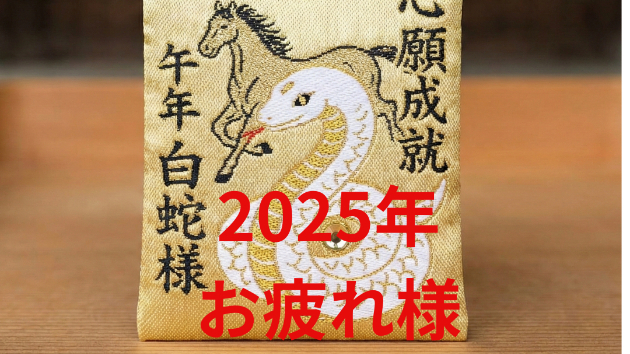 心願成就
午年白蛇様
2025年
お疲れ様